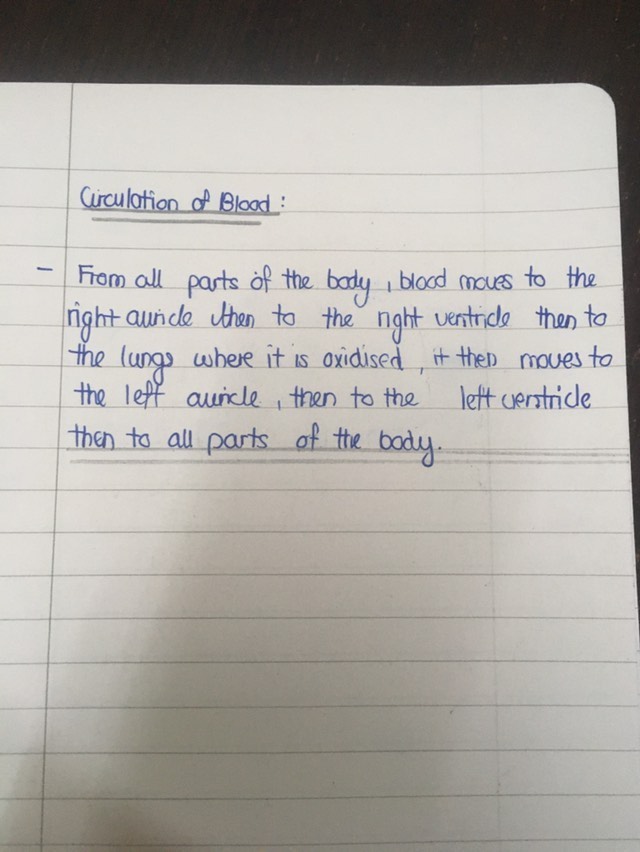 Circulation of Blood :
- From all parts of the body , blood moves to the
right auricle then to the right ventricle then to
the lungs where it is oxidised , it then moves to
the left auricle , then to the left ventricle
then to all parts of the body.